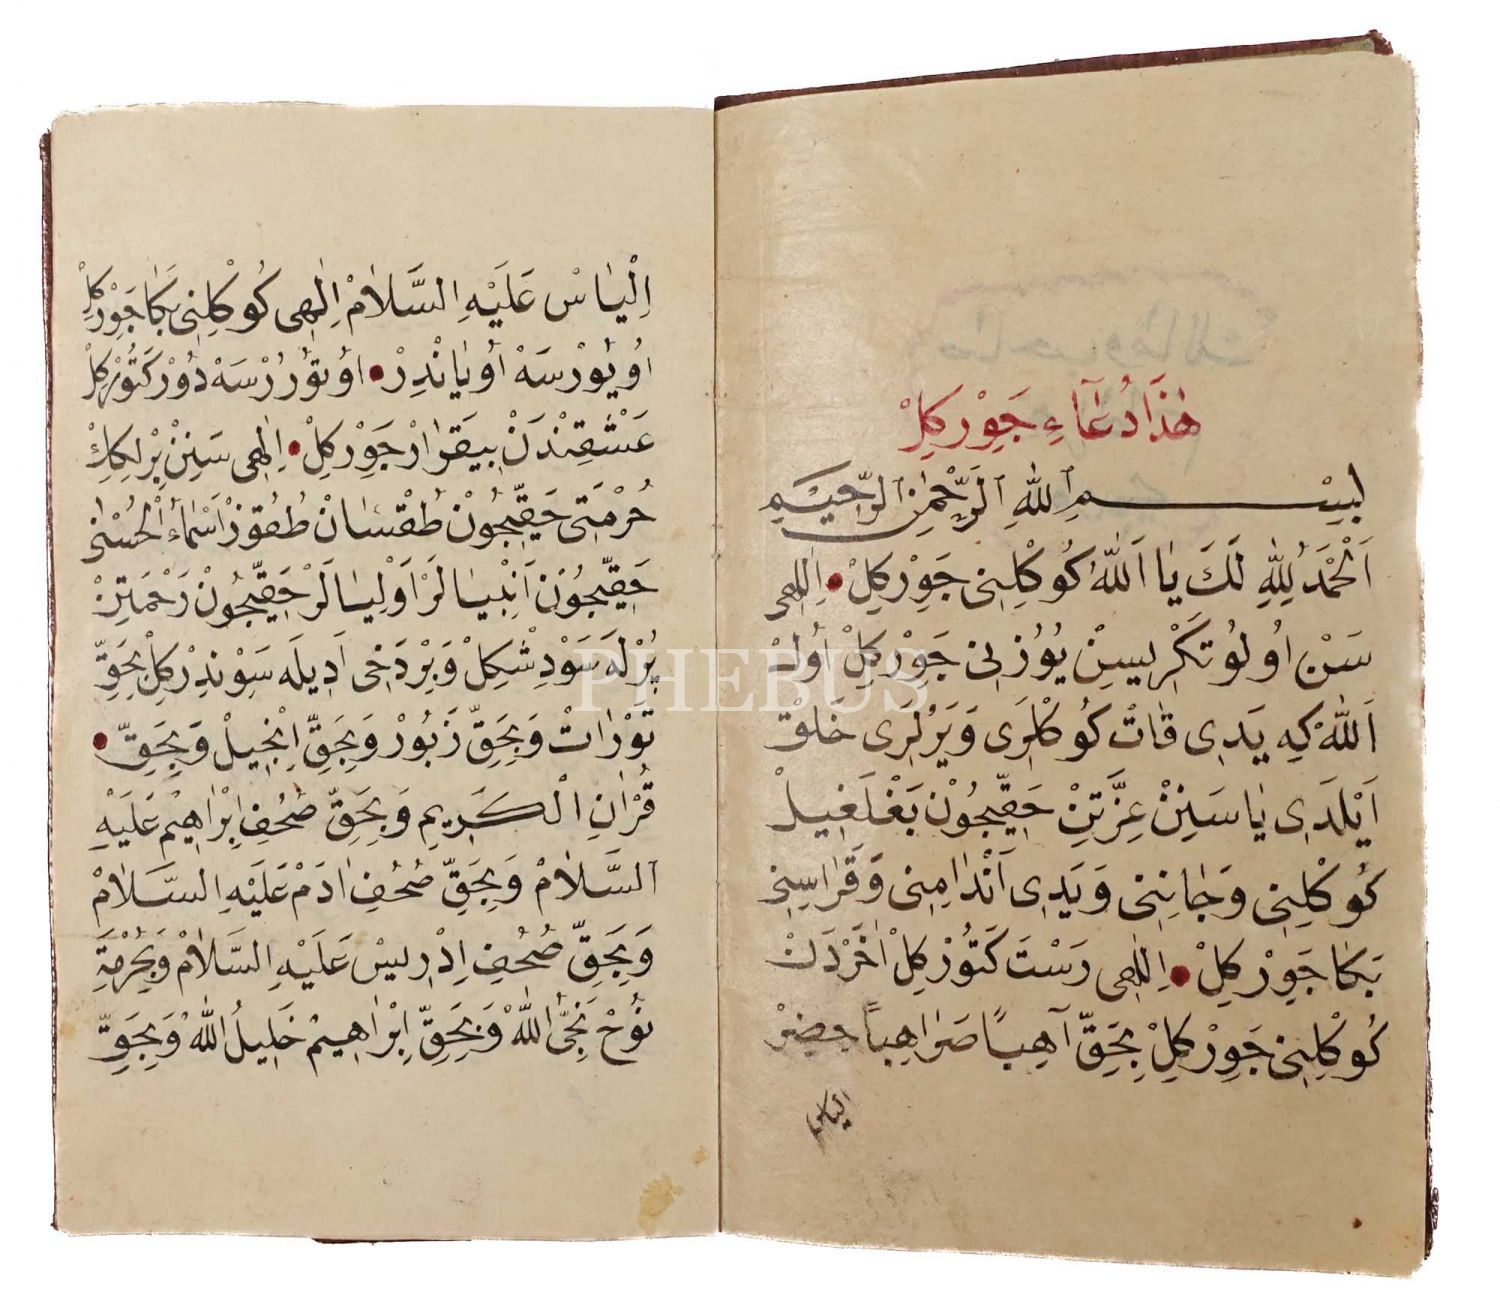 هٰذَا دُعَآءِ جَوِرْ كِلْ
بِسْمِ اللّٰهِ الرَّحْمٰنِ الرَّحِيمِ
اَلْحَمْدُ لِلّٰهِ لَكَ يَا اَللّٰهُ كُوكْلِنِى جَوِرْ كِلْ • اِلٰهِى
سَنْ اُولُو تَكْرِيسِنْ يُوُزنِى جَوِرْ كِلْ اُولْ
اَللّٰهْ كِه يَدِى قَاتْ كُوكْلَرِى وَيَرْلَرِى خَلْقْ
اَيْلَدِى يَا سَنِنْ عِزَّتِنْ حَقِّيچُونْ بَغْلَغِيلْ
كُوكْلِنِى وَجَانِنِى وَيَدِى اَنْدَامِنِى وَقَرَاسِنِى
بَكَا جَوِرْ كِلْ • اِلٰهِى رَسْتَ كَتُوُرْ كِلْ اٰخَرْدَنْ
كُوكْلِنِى جَوِرْ كِلْ بِحَقِّ آهِيًا صَرَاهِيًا خِضِرْ
الياس
اِلْيَاسْ عَلَيْهِ السَّلَامْ اِلٰهِى كُوكْلِنِى بَكَا جَوِرْ كِلْ
اُويُوُرْسَهْ اُويَانْدِرْ • اوُتوُرُرْسَهْ دُوُرْ كَتُوُرْ كِلْ
عَشْقِنْدَنْ بِيقَرَارْ جَوِرْ كِلْ • اِلٰهِى سَنِنْ بِرْلِكِكْ
حُرْمَتِى حَقِّيچُونْ طُقْسَانْ طُقُوزْ اَسْمَاءُ الْحُسْنٰى
حَقِّيچُونْ اَنْبِيَالَرْ اَوْلِيَالَرْ حَقِّيچُونْ رَحْمَتِنْ
بِرْلَه سَوْدِشْكِلْ وَبِرْدَخِى اَدِيلَه سَوِنْدِرْ كِلْ بِحَقِّ
تَوْرَاتْ وَبِحَقِّ زَبُورْ وَبِحَقِّ اِنْجِيلْ وَبِحَقِّ •
قُرْاٰنِ الْكَرِيمِ وَبِحَقِّ صُحُفِ اِبْرَاهِيمْ عَلَيْهِ
السَّلَامْ وَبِحَقِّ صُحُفِ اٰدَمْ عَلَيْهِ السَّلَامْ
وَبِحَقِّ صُحُفِ اِدْرِيسْ عَلَيْهِ السَّلَامْ وَبِحُرْمَةِ
نُوحْ نَجِىُّ اللّٰهْ وَبِحَقِّ اِبْرَاهِيمْ خَلِيلُ اللّٰهْ وَبِحَقِّ
PHEBUS